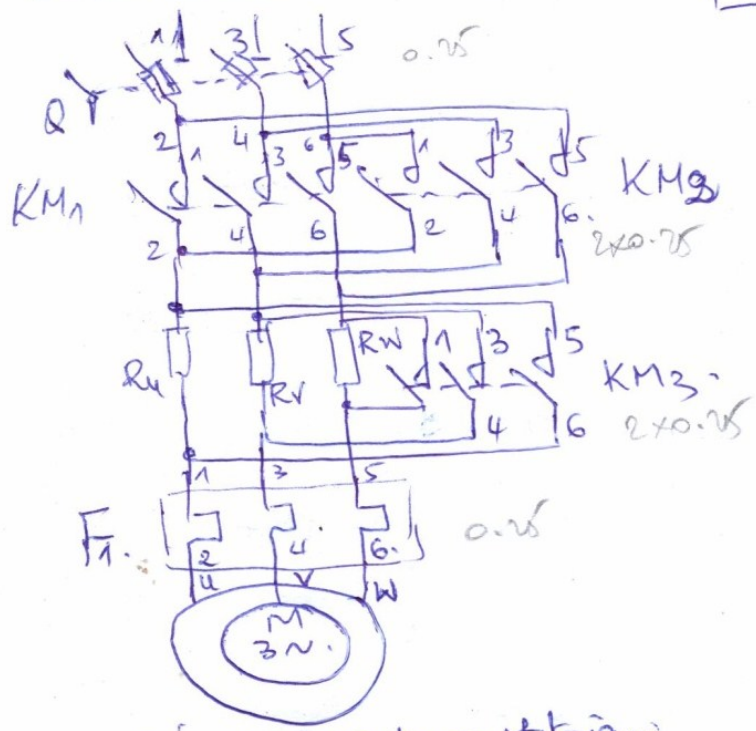 1 3 5 0.25
Q
2 4 6
1 3 5 1 3 5
KM1 KM2
2 4 6 2 4 6.
2x0.25
Ru RV RW 1 3 5
KM3.
4 6
2x0.25
1 3 5
F1. 0.25
2 4 6.
U V W
M
3~.